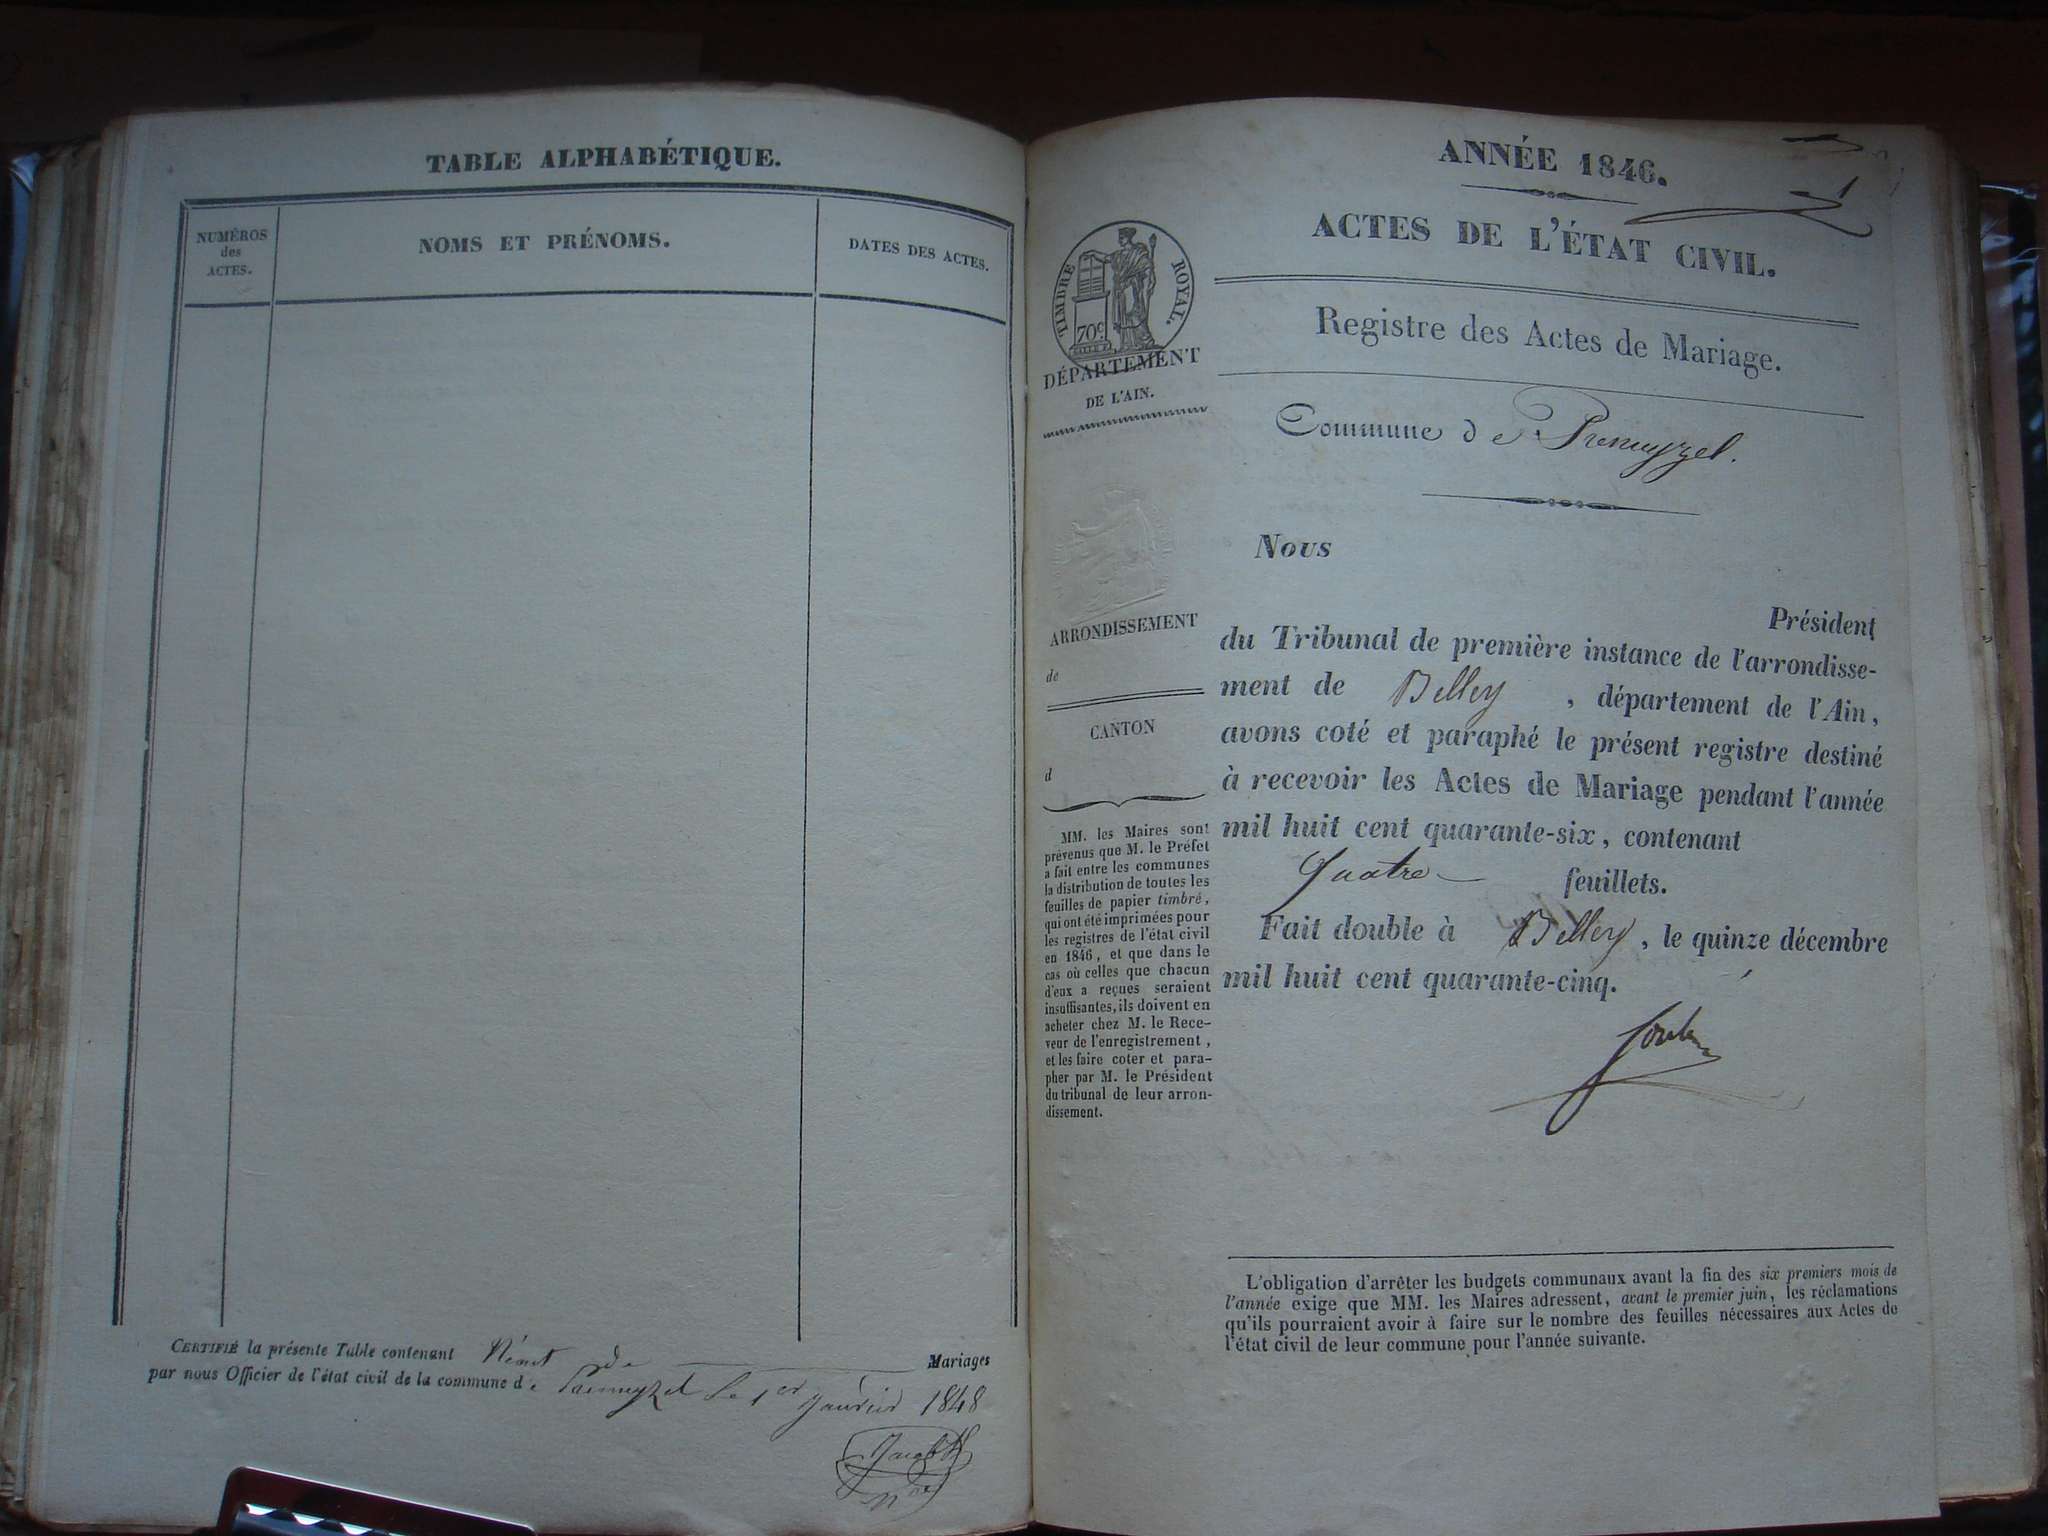 TABLE ALPHABÉTIQUE.
NUMÉROS
des
ACTES.
NOMS ET PRÉNOMS.
DATES DES ACTES.
CERTIFIÉ la présente Table contenant Néant de Mariages
par nous Officier de l'état civil de la commune de Premeyzel le 1er janvier 1848
ANNÉE 1846.
1
ACTES DE L'ÉTAT CIVIL.
TIMBRE ROYAL.
70c
DÉPARTEMENT
DE L'AIN.
Registre des Actes de Mariage.
Commune de Premeyzel.
ARRONDISSEMENT
de
CANTON
d
MM. les Maires sont
prévenus que M. le Préfet
a fait entre les communes
la distribution de toutes les
feuilles de papier timbré,
qui ont été imprimées pour
les registres de l'état civil
en 1846, et que dans le
cas où celles que chacun
d'eux a reçues seraient
insuffisantes, ils doivent en
acheter chez M. le Rece-
veur de l'enregistrement,
et les faire coter et para-
pher par M. le Président
du tribunal de leur arron-
dissement.
Nous
Président
du Tribunal de première instance de l'arrondisse-
ment de Belley, département de l'Ain,
avons coté et paraphé le présent registre destiné
à recevoir les Actes de Mariage pendant l'année
mil huit cent quarante-six, contenant
Quatre feuillets.
Fait double à Belley, le quinze décembre
mil huit cent quarante-cinq.
L'obligation d'arrêter les budgets communaux avant la fin des six premiers mois de
l'année exige que MM. les Maires adressent, avant le premier juin, les réclamations
qu'ils pourraient avoir à faire sur le nombre des feuilles nécessaires aux Actes de
l'état civil de leur commune pour l'année suivante.